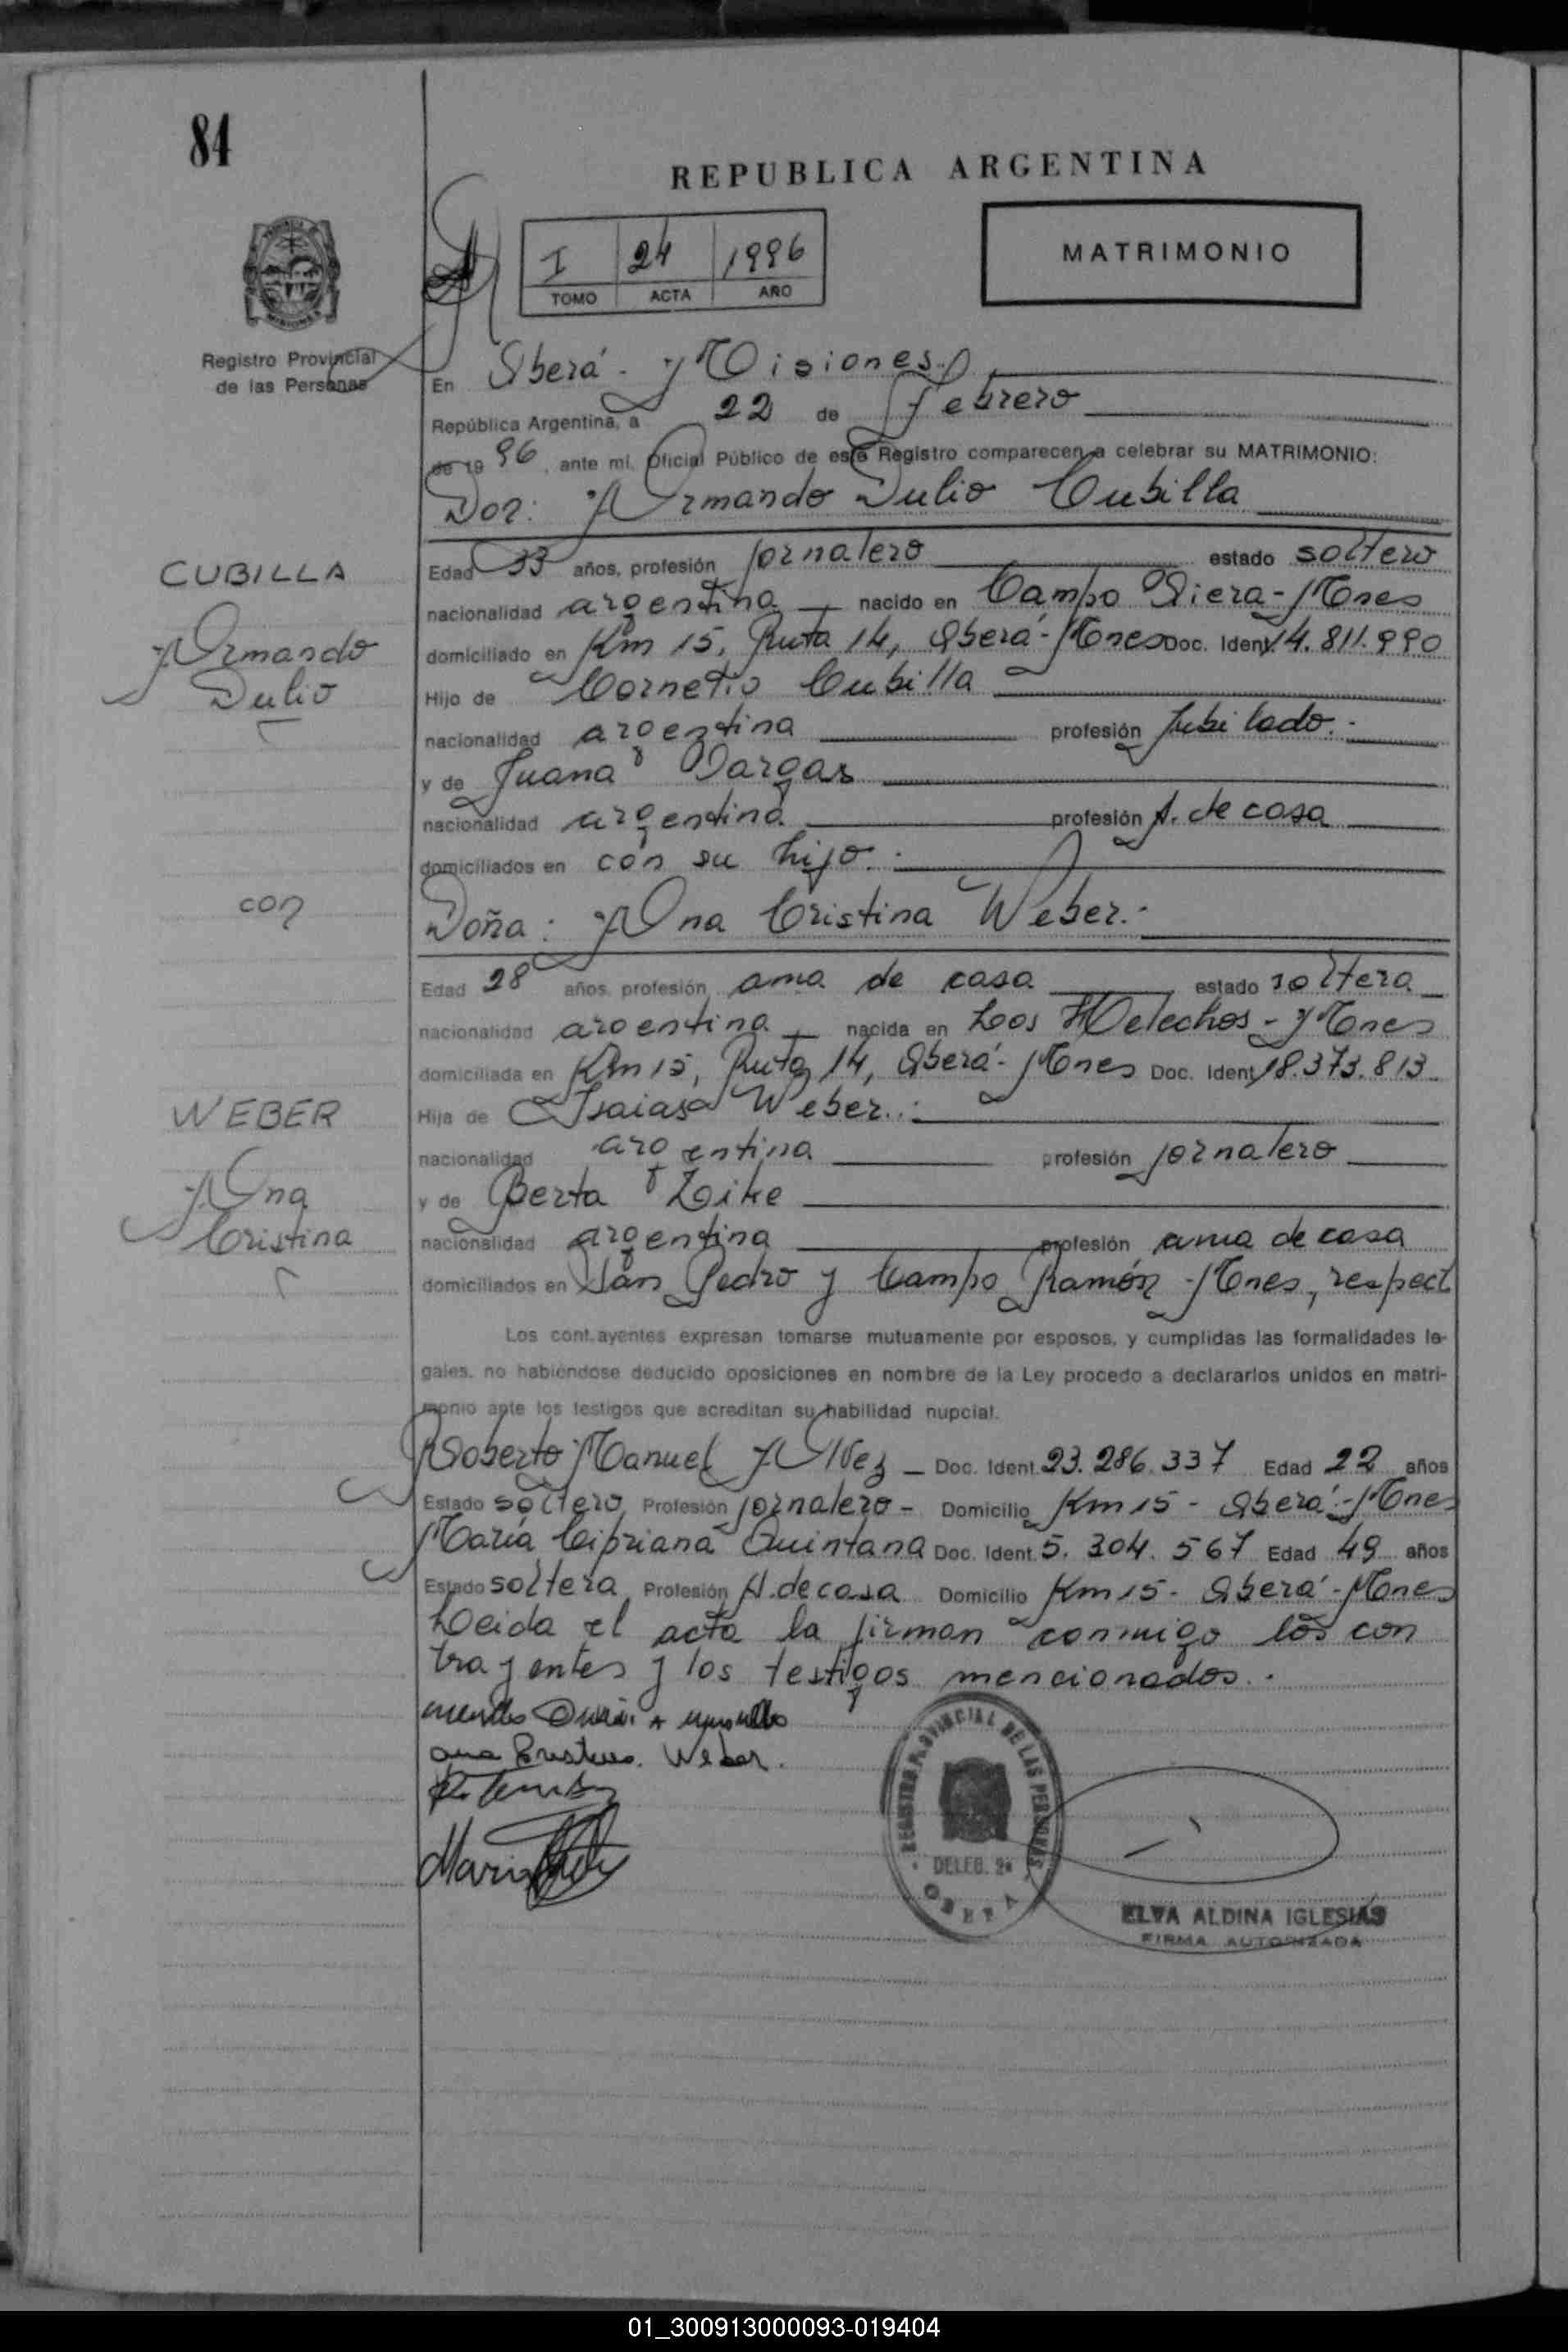 84
REPUBLICA ARGENTINA
I 24 1996
TOMO ACTA AÑO
MATRIMONIO
Registro Provincial
de las Personas
En Oberá - Misiones.
República Argentina, a 22 de Febrero
de 19 96, ante mí, Oficial Público de este Registro comparecen a celebrar su MATRIMONIO:
Don: Armando Dulio Cubilla
CUBILLA
Armando
Dulio
Edad 33 años, profesión jornalero estado soltero
nacionalidad argentina nacido en Campo Viera - Mnes
domiciliado en Km 15, Ruta 14, Oberá - Mnes Doc. Ident. 14.811.990
Hijo de Cornelio Cubilla
nacionalidad argentina profesión jubilado.
y de Juana Vargas
nacionalidad argentina profesión A. de casa
domiciliados en con su hijo.
con
Doña: Ana Cristina Weber.-
Edad 28 años, profesión ama de casa estado soltera
nacionalidad argentina nacida en Los Helechos - Mnes
domiciliada en Km 15, Ruta 14, Oberá - Mnes Doc. Ident. 18.373.813
WEBER
Ana
Cristina
Hija de Isaias Weber.:
nacionalidad argentina profesión jornalero
y de Berta Zike
nacionalidad argentina profesión ama de casa
domiciliados en San Pedro y Campo Ramón - Mnes, respect
Los contrayentes expresan tomarse mutuamente por esposos, y cumplidas las formalidades le-
gales, no habiéndose deducido oposiciones en nombre de la Ley procedo a declararlos unidos en matri-
monio ante los testigos que acreditan su habilidad nupcial.
Roberto Manuel Alvez Doc. Ident. 23.286.337 Edad 22 años
Estado soltero Profesión jornalero - Domicilio Km 15 - Oberá - Mnes
María Cipriana Quintana Doc. Ident. 5.304.567 Edad 49 años
Estado soltera Profesión A. de casa Domicilio Km 15 - Oberá - Mnes
Leida el acta la firman conmigo los con
trayentes y los testigos mencionados.
ana Cristina Weber.
REGISTRO PROVINCIAL DE LAS PERSONAS
DELEG. 2ª
OBERA
ELVA ALDINA IGLESIAS
FIRMA AUTORIZADA
01_300913000093-019404